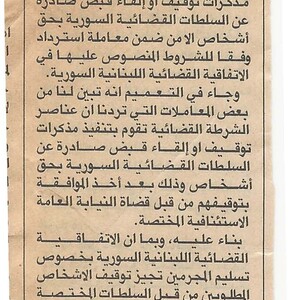 مذكرات توقيف أو إلقاء قبض صادرة
عن السلطات القضائية السورية بحق
أشخاص الا من ضمن معاملة استرداد
وفقا للشروط المنصوص عليها في
الاتفاقية القضائية اللبنانية السورية.
وجاء في التعميم انه تبين لنا من
بعض المعاملات التي تردنا ان عناصر
الشرطة القضائية تقوم بتنفيذ مذكرات
توقيف أو إلقاء قبض صادرة عن
السلطات القضائية السورية بحق
أشخاص وذلك بعد أخذ الموافقة
بتوقيفهم من قبل قضاة النيابة العامة
الاستئنافية المختصة.
بناء عليه، وبما ان الاتفاقية
القضائية اللبنانية السورية بخصوص
تسليم المجرمين تجيز توقيف الاشخاص
المطلوبين من قبل السلطات المختصة